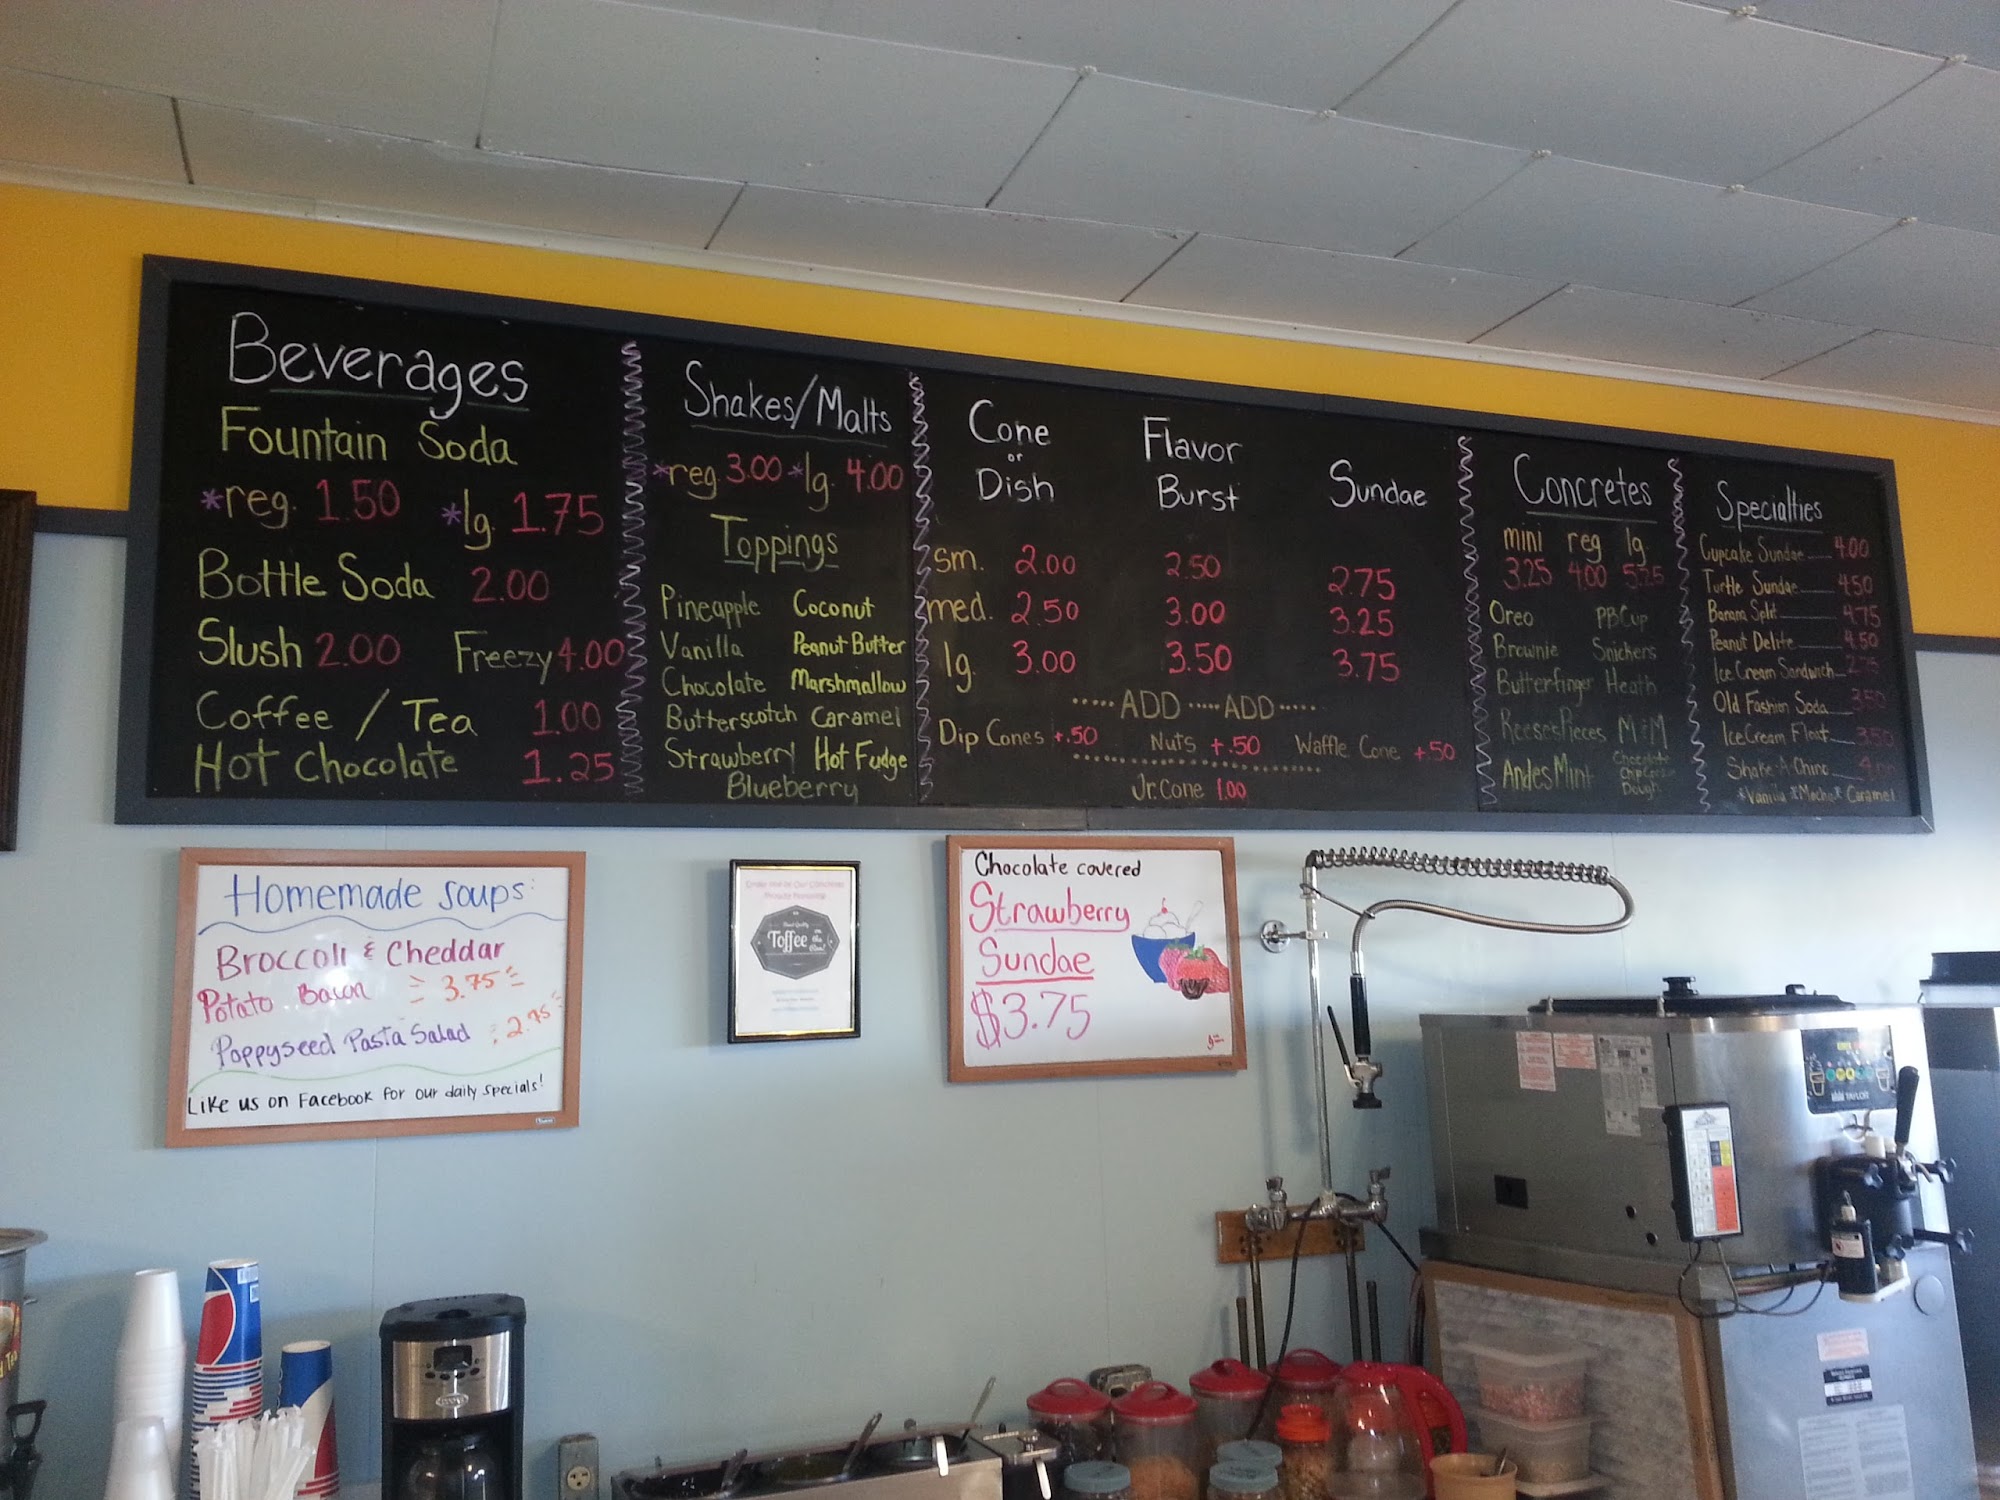 Beverages
Fountain Soda
*reg. 1.50 *lg. 1.75
Bottle Soda 2.00
Slush 2.00 Freezy 4.00
Coffee / Tea 1.00
Hot Chocolate 1.25
Shakes/Malts
*reg. 3.00 *lg. 4.00
Toppings
Pineapple Coconut
Vanilla Peanut Butter
Chocolate Marshmallow
Butterscotch Caramel
Strawberry Hot Fudge
Blueberry
Cone or Dish Flavor Burst Sundae
sm. 2.00 2.50 2.75
med. 2.50 3.00 3.25
lg. 3.00 3.50 3.75
ADD ADD
Dip Cones +.50 Nuts +.50 Waffle Cone +.50
Jr. Cone 1.00
Concretes
mini reg lg.
3.25 4.00 5.25
Oreo PB Cup
Brownie Snickers
Butterfinger Heath
Reeses Pieces M&M
Andes Mint Chocolate Chip Cookie Dough
Specialties
Cupcake Sundae 4.00
Turtle Sundae 4.50
Banana Split 4.75
Peanut Delite 4.50
Ice Cream Sandwich 2.75
Old Fashion Soda 3.50
Ice Cream Float 3.50
Shake-A-Chino 4.00
*Vanilla *Mocha* Caramel
Homemade soups:
Broccoli & Cheddar
Potato Bacon 3.75
Poppyseed Pasta Salad 2.75
Like us on Facebook for our daily specials!
Toffee
Chocolate covered
Strawberry
Sundae
$3.75
TAYLOR